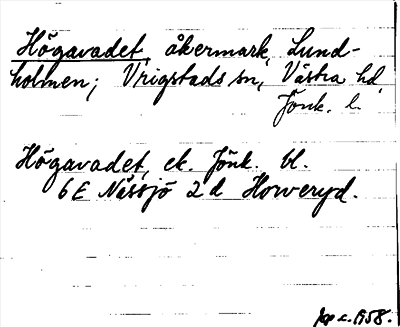 Högavadet, åkermark, Lund-
holmen; Vrigstads sn, Västra hd,
Jönk. l.
Högavadet, ek. Jönk. bl.
6E Nässjö 2d Horveryd.
c. 1958.